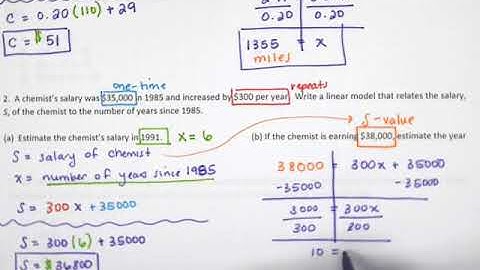 C = 0.20 (110) + 29
C = $ 51
0.20 0.20
1355 = x
miles
one-time
repeats
2. A chemist's salary was $35,000 in 1985 and increased by $300 per year. Write a linear model that relates the salary,
S, of the chemist to the number of years since 1985.
S-value
(a) Estimate the chemist's salary in 1991. x = 6
(b) If the chemist is earning $38,000, estimate the year
S = salary of chemist
x = number of years since 1985
S = 300 x + 35000
S = 300 (6) + 35000
S = $ 36800
38000 = 300x + 35000
-35000 -35000
3000 = 300x
300 300
10 =